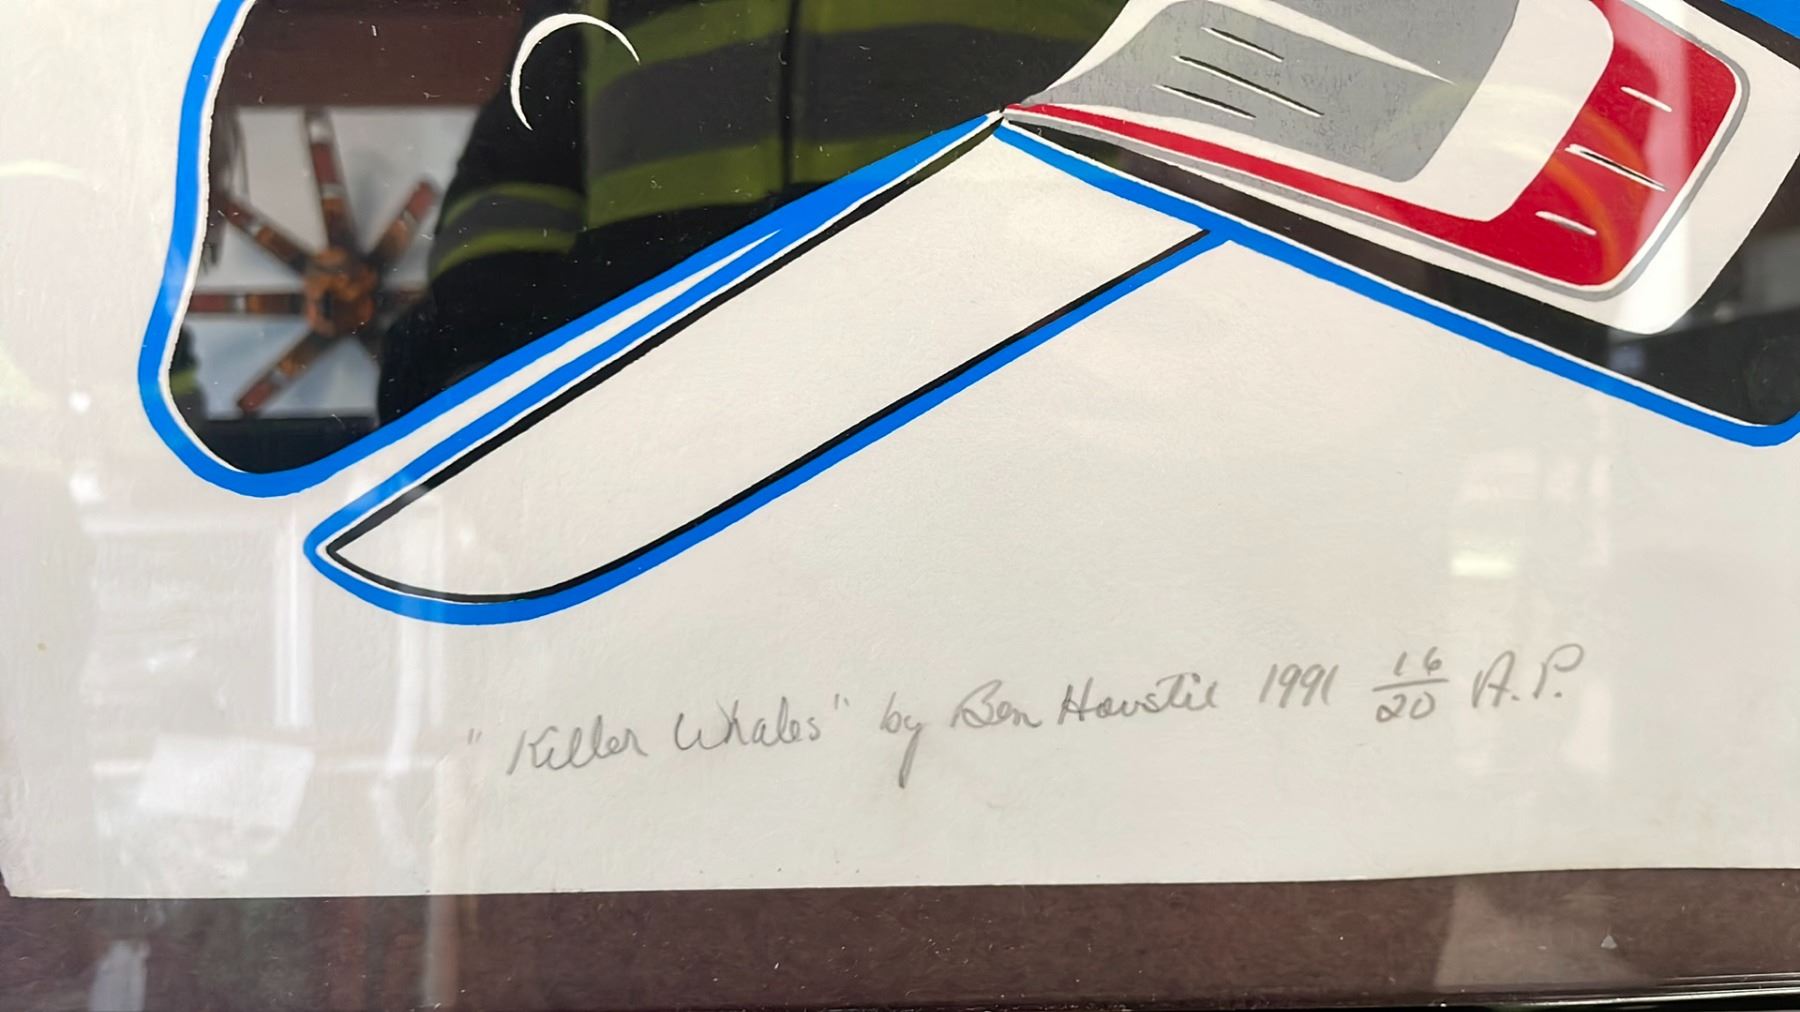 "Killer Whales" by Ben Houstie 1991 16/20 A.P.